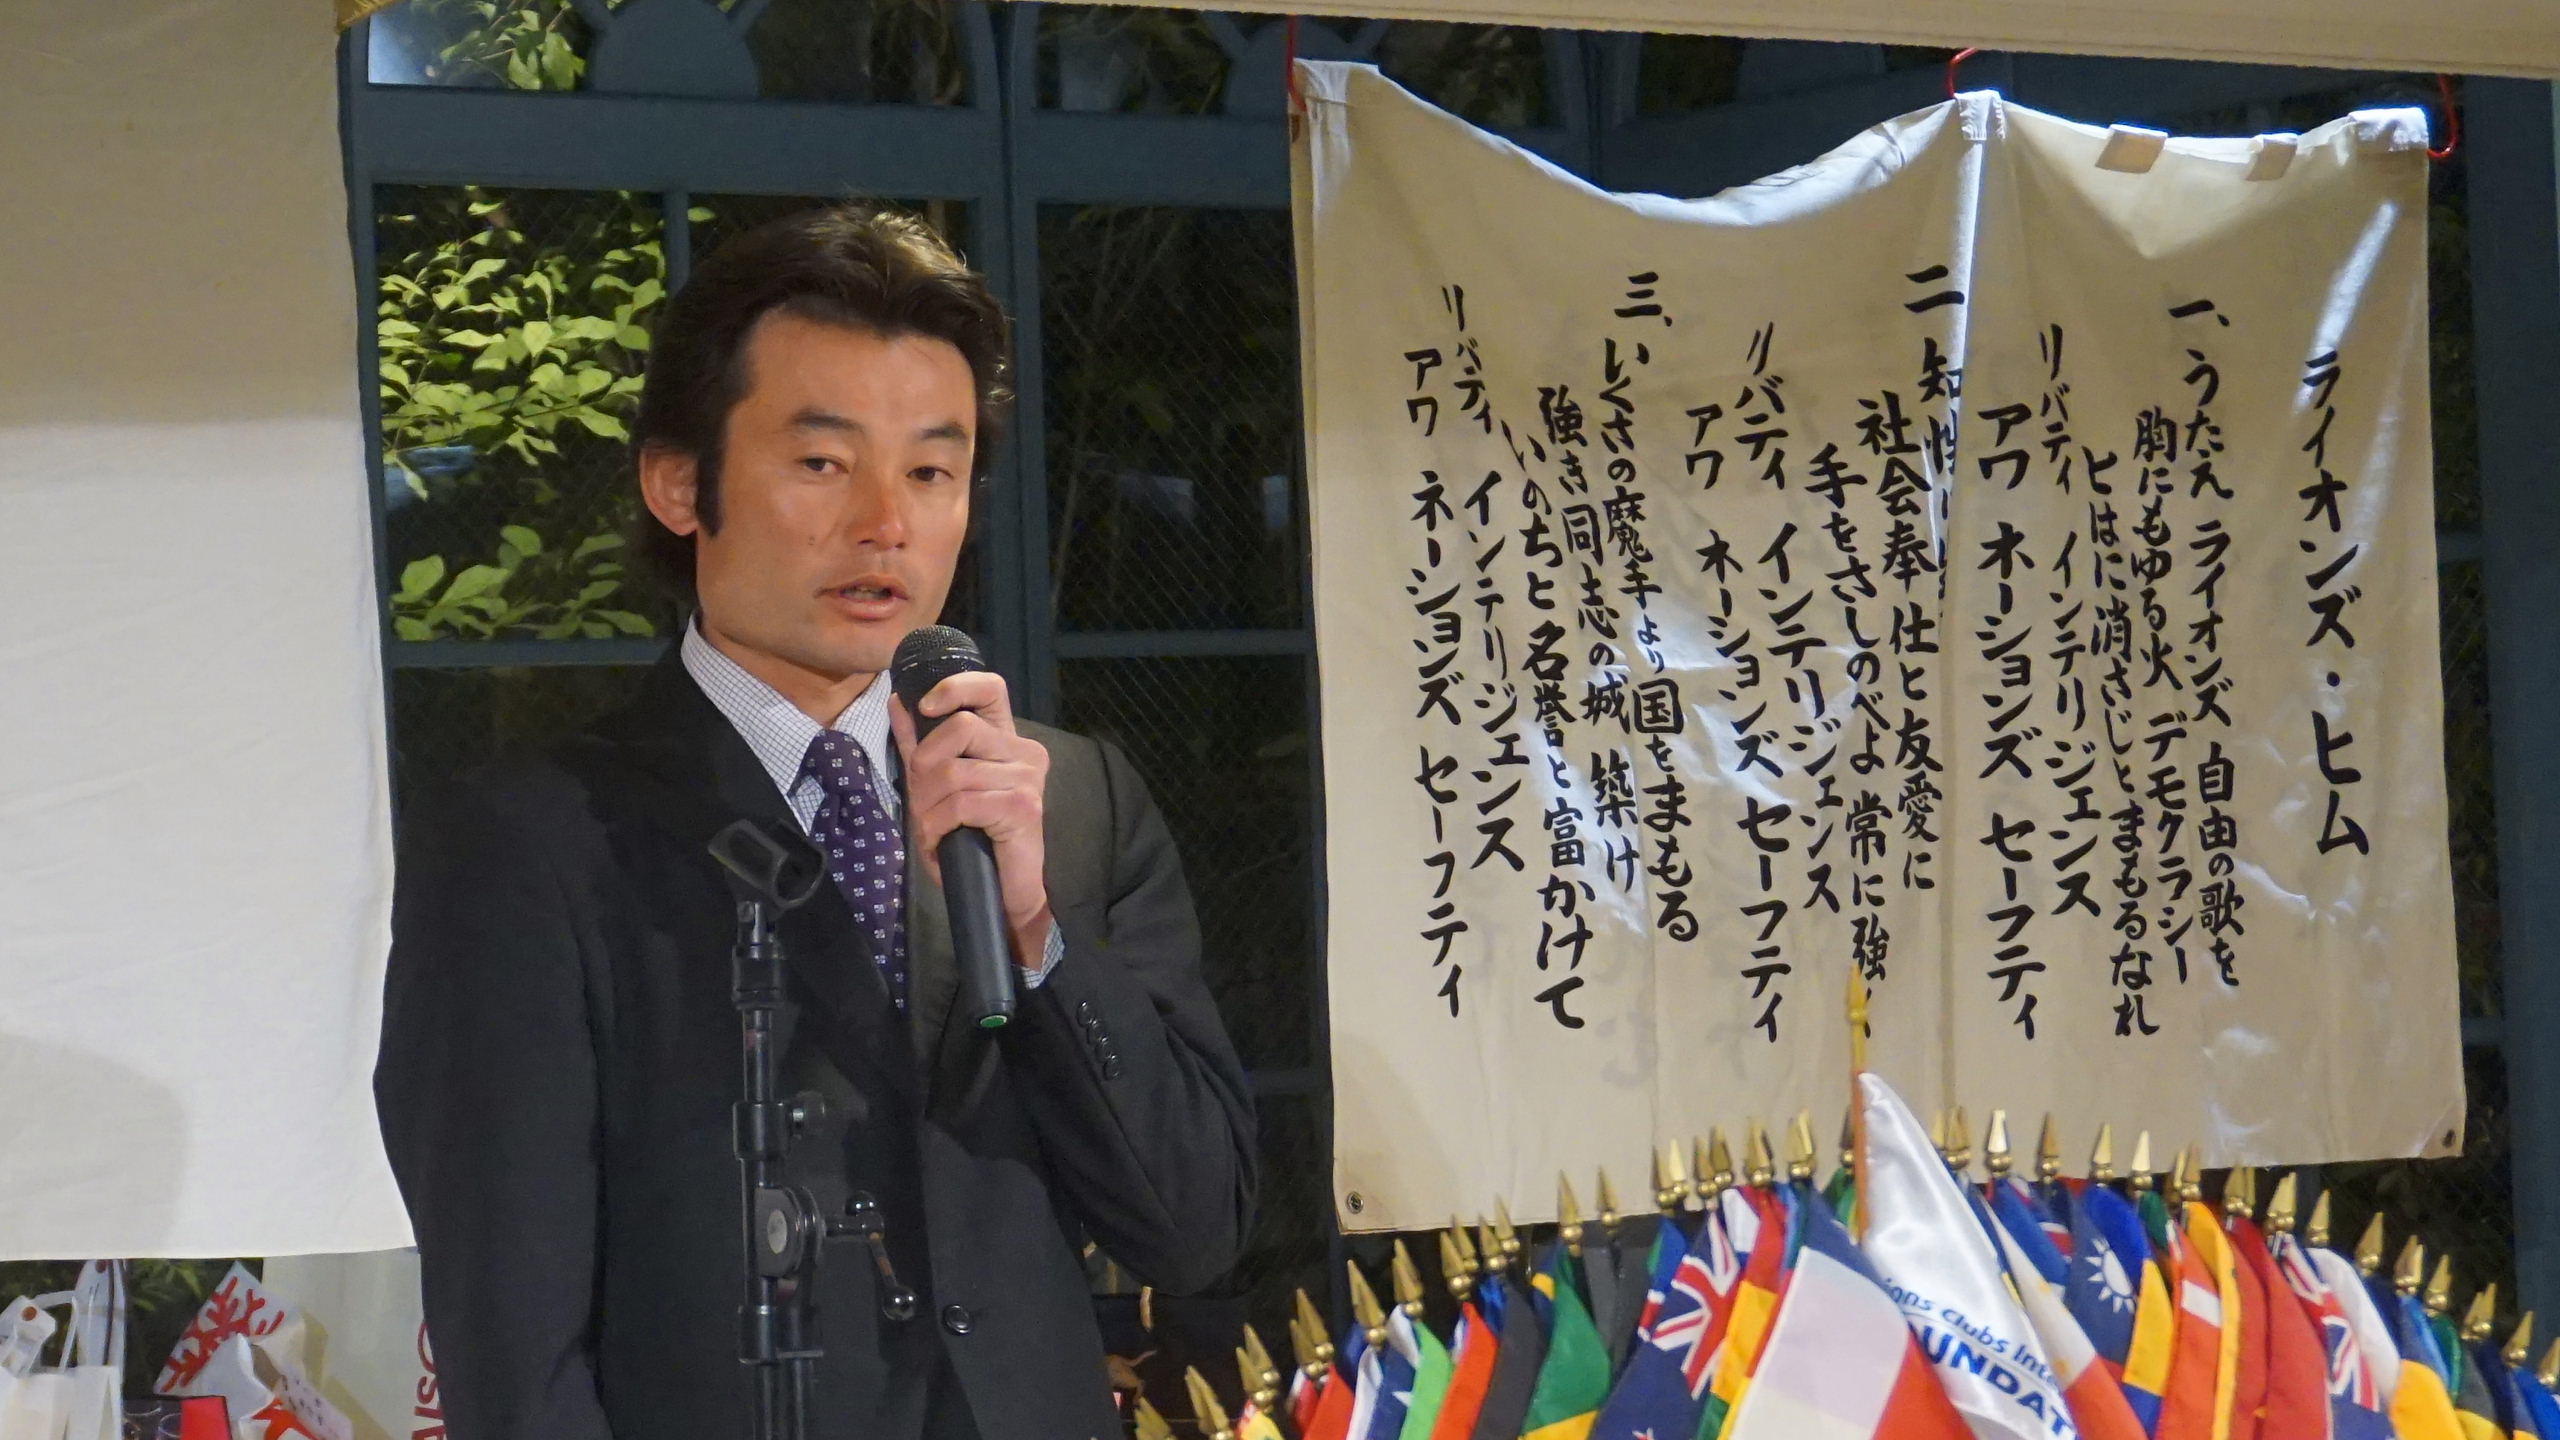 ライオンズ・ヒム
一、うたえ ライオンズ 自由の歌を
胸にもゆる火 デモクラシー
とはに消さじとまもるなれ
リバティ インテリジェンス
アワ ネーションズ セーフティ
二 知性
社会奉仕と友愛に
手をさしのべよ 常に強
リバティ インテリジェンス
アワ ネーションズ セーフティ
三、いくさの魔手より国をまもる
強き同志の城 築け
いのちと名誉と富かけて
リバティ インテリジェンス
アワ ネーションズ セーフティ
ions clubs Inte
UNDAT